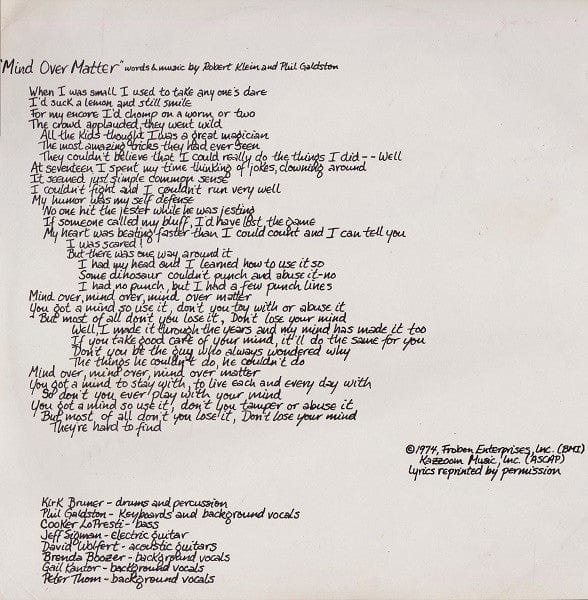 "Mind Over Matter" words & music by Robert Klein and Phil Galdston
When I was small I used to take any one's dare
I'd suck a lemon and still smile
For my encore I'd chomp on a worm or two
The crowd applauded, they went wild
All the kids thought I was a great magician
The most amazing tricks they had ever seen
They couldn't believe that I could really do the things I did-- Well
At seventeen I spent my time thinking of jokes, clowning around
It seemed just simple common sense
I couldn't fight and I couldn't run very well
My humor was my self defense
No one hit the jester while he was jesting
If someone called my bluff, I'd have lost the game
My heart was beating faster than I could count and I can tell you
I was scared!
But there was one way around it
I had my head and I learned how to use it so
Some dinosaur couldn't punch and abuse it-no
I had no punch, but I had a few punch lines
Mind over, mind over, mind over matter
You got a mind so use it, don't you toy with or abuse it
But most of all don't you lose it, Don't lose your mind
Well, I made it through the years and my mind has made it too
If you take good care of your mind, it'll do the same for you
Don't you be the guy who always wondered why
The things he couldn't do, he couldn't do
Mind over, mind over, mind over matter
You got a mind to stay with, to live each and every day with
So don't you ever play with your mind
You got a mind so use it, don't you tamper or abuse it
But most of all don't you lose it, Don't lose your mind
They're hard to find
©1974, Froben Enterprises, Inc. (BMI)
Kazzoom Music, Inc. (ASCAP)
Lyrics reprinted by permission
Kirk Bruner - drums and percussion
Phil Galdston - Keyboards and background vocals
Cooker LoPresti - bass
Jeff Sigman - electric guitar
David Wolfert - acoustic guitars
Brenda Boozer - background vocals
Gail Kantor - background vocals
Peter Thom - background vocals